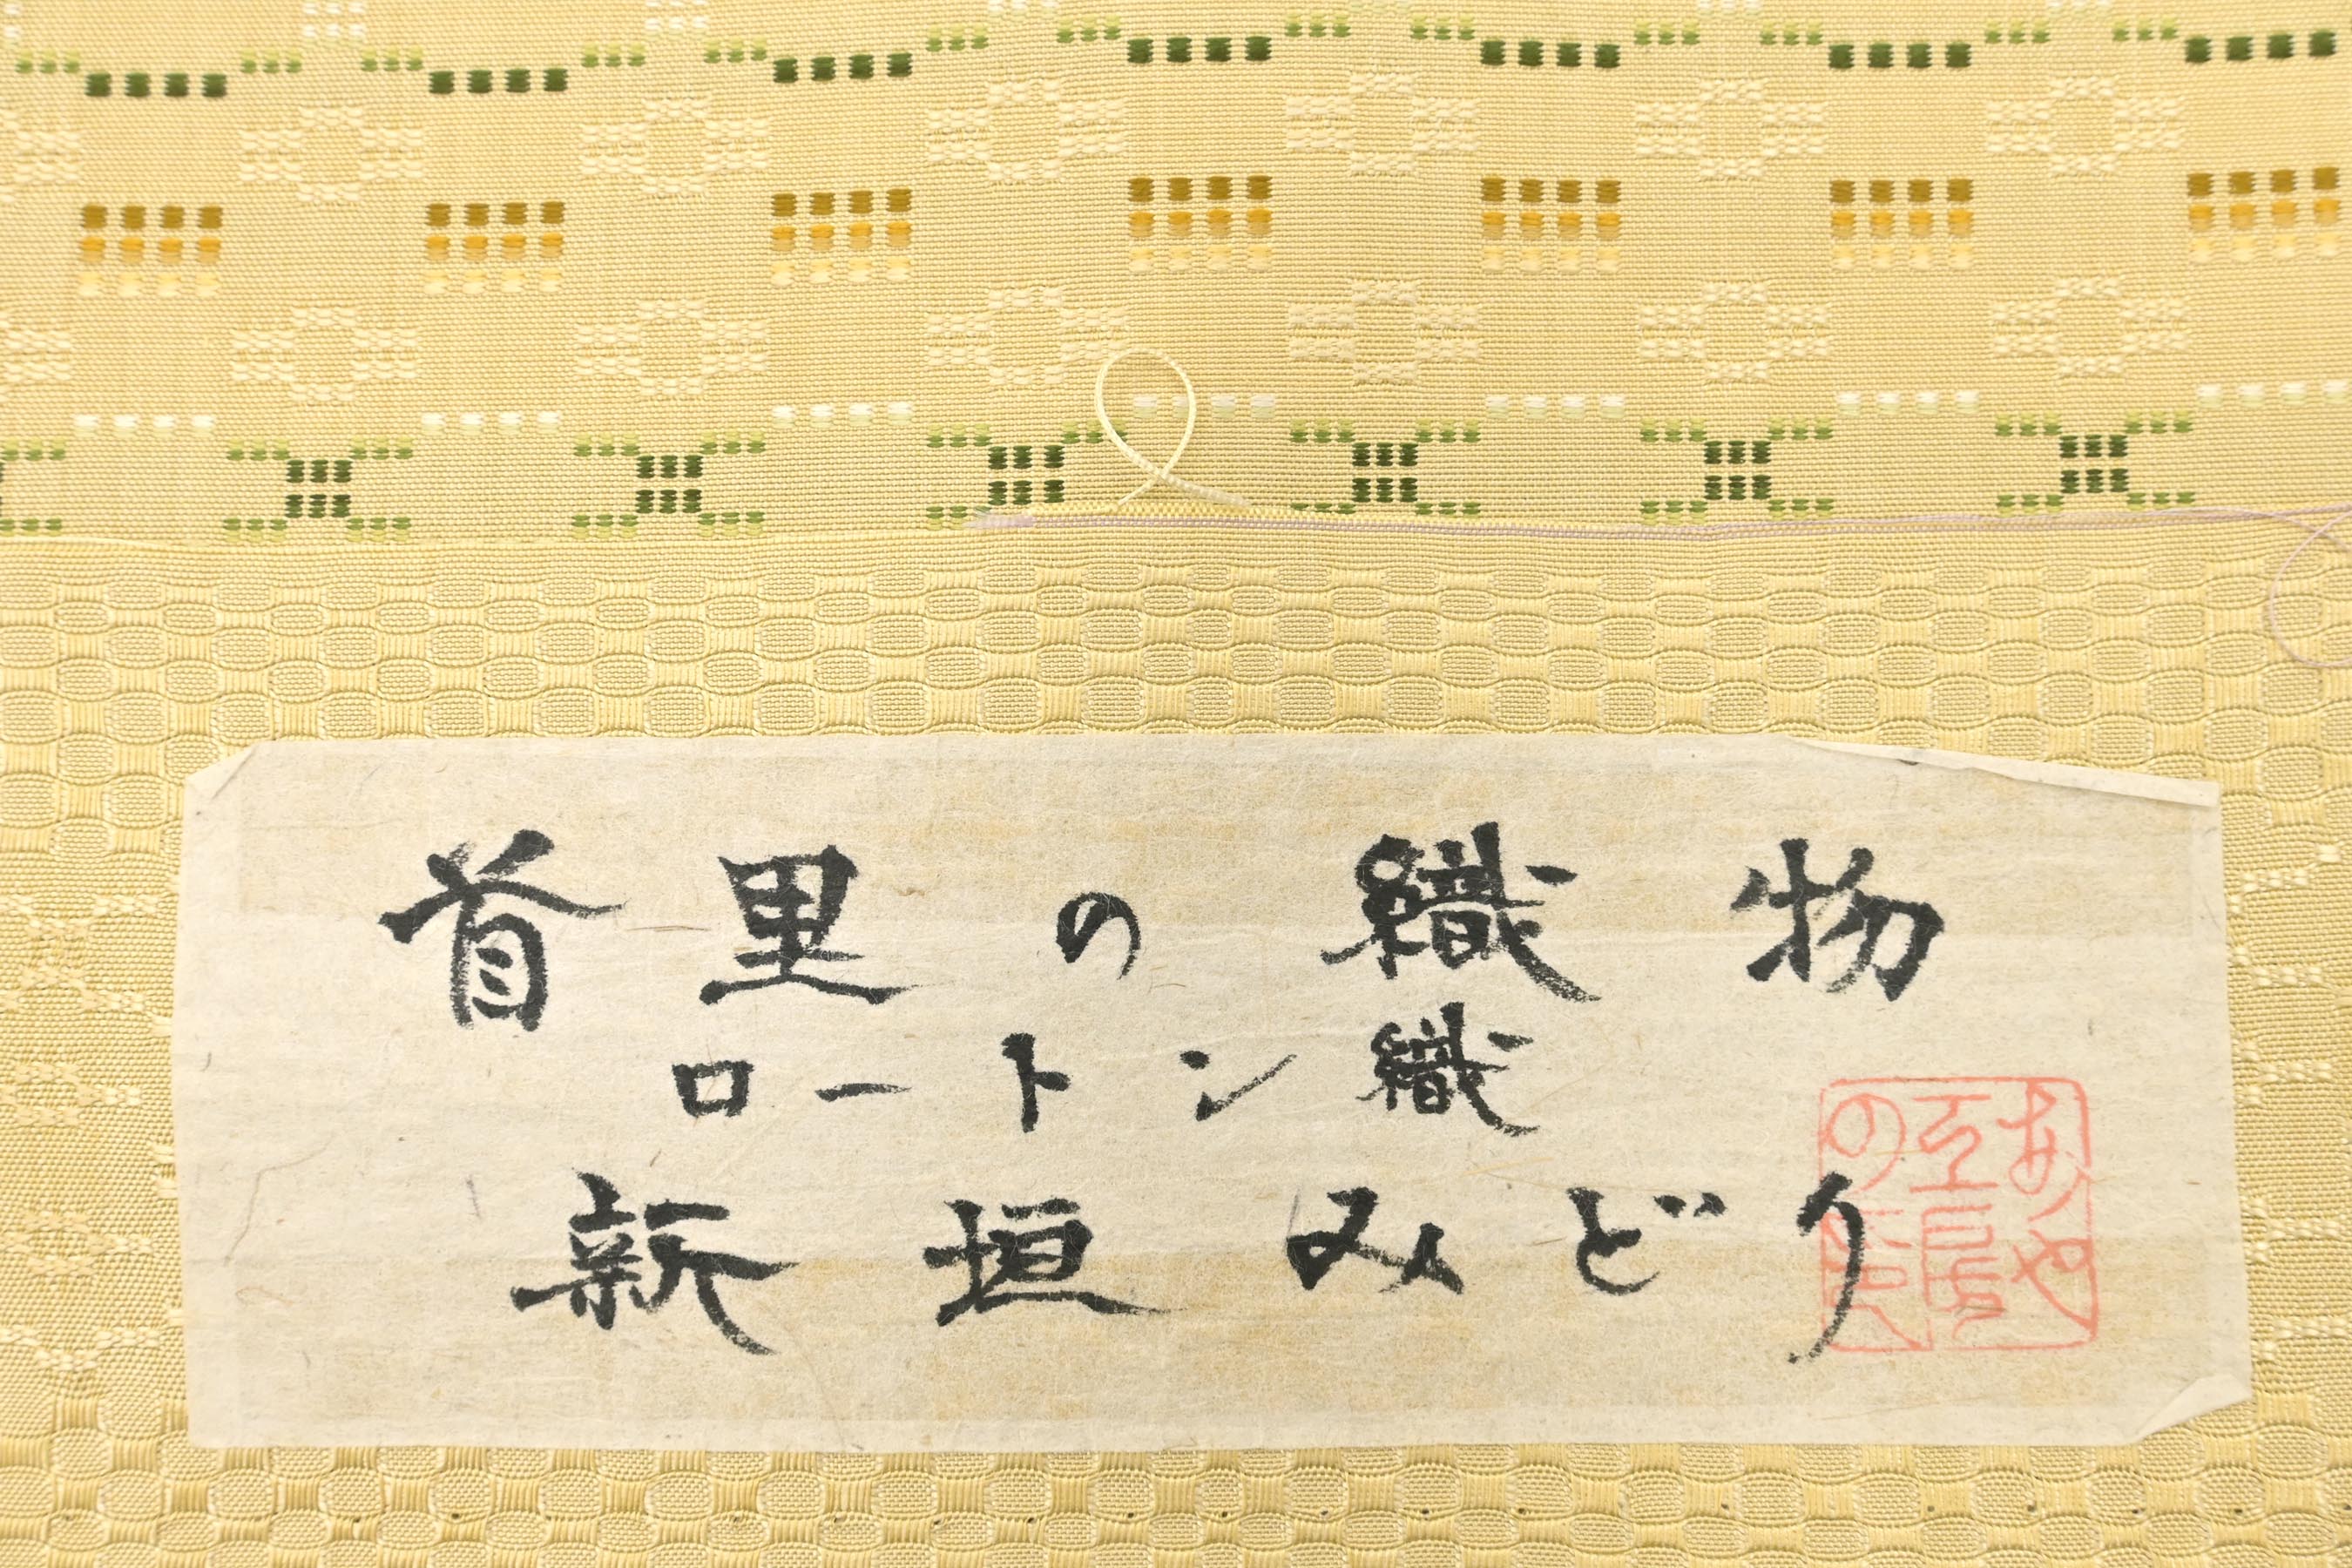 首里の織物
ロートン織
新垣みどり
あや
工房
の